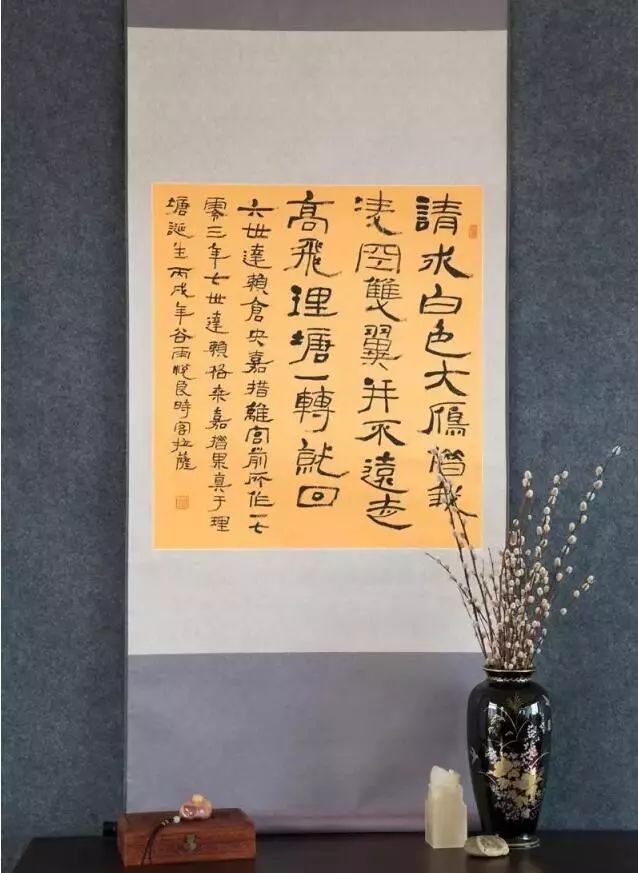 請求白色大鴈借我
凌罡雙翼并不遠走
高飛理塘一轉就回
六世達賴倉央嘉措離宮前所作一七
零三年七世達賴格桑嘉措果真于理
塘誕生丙戌年谷雨悅良時客拉薩